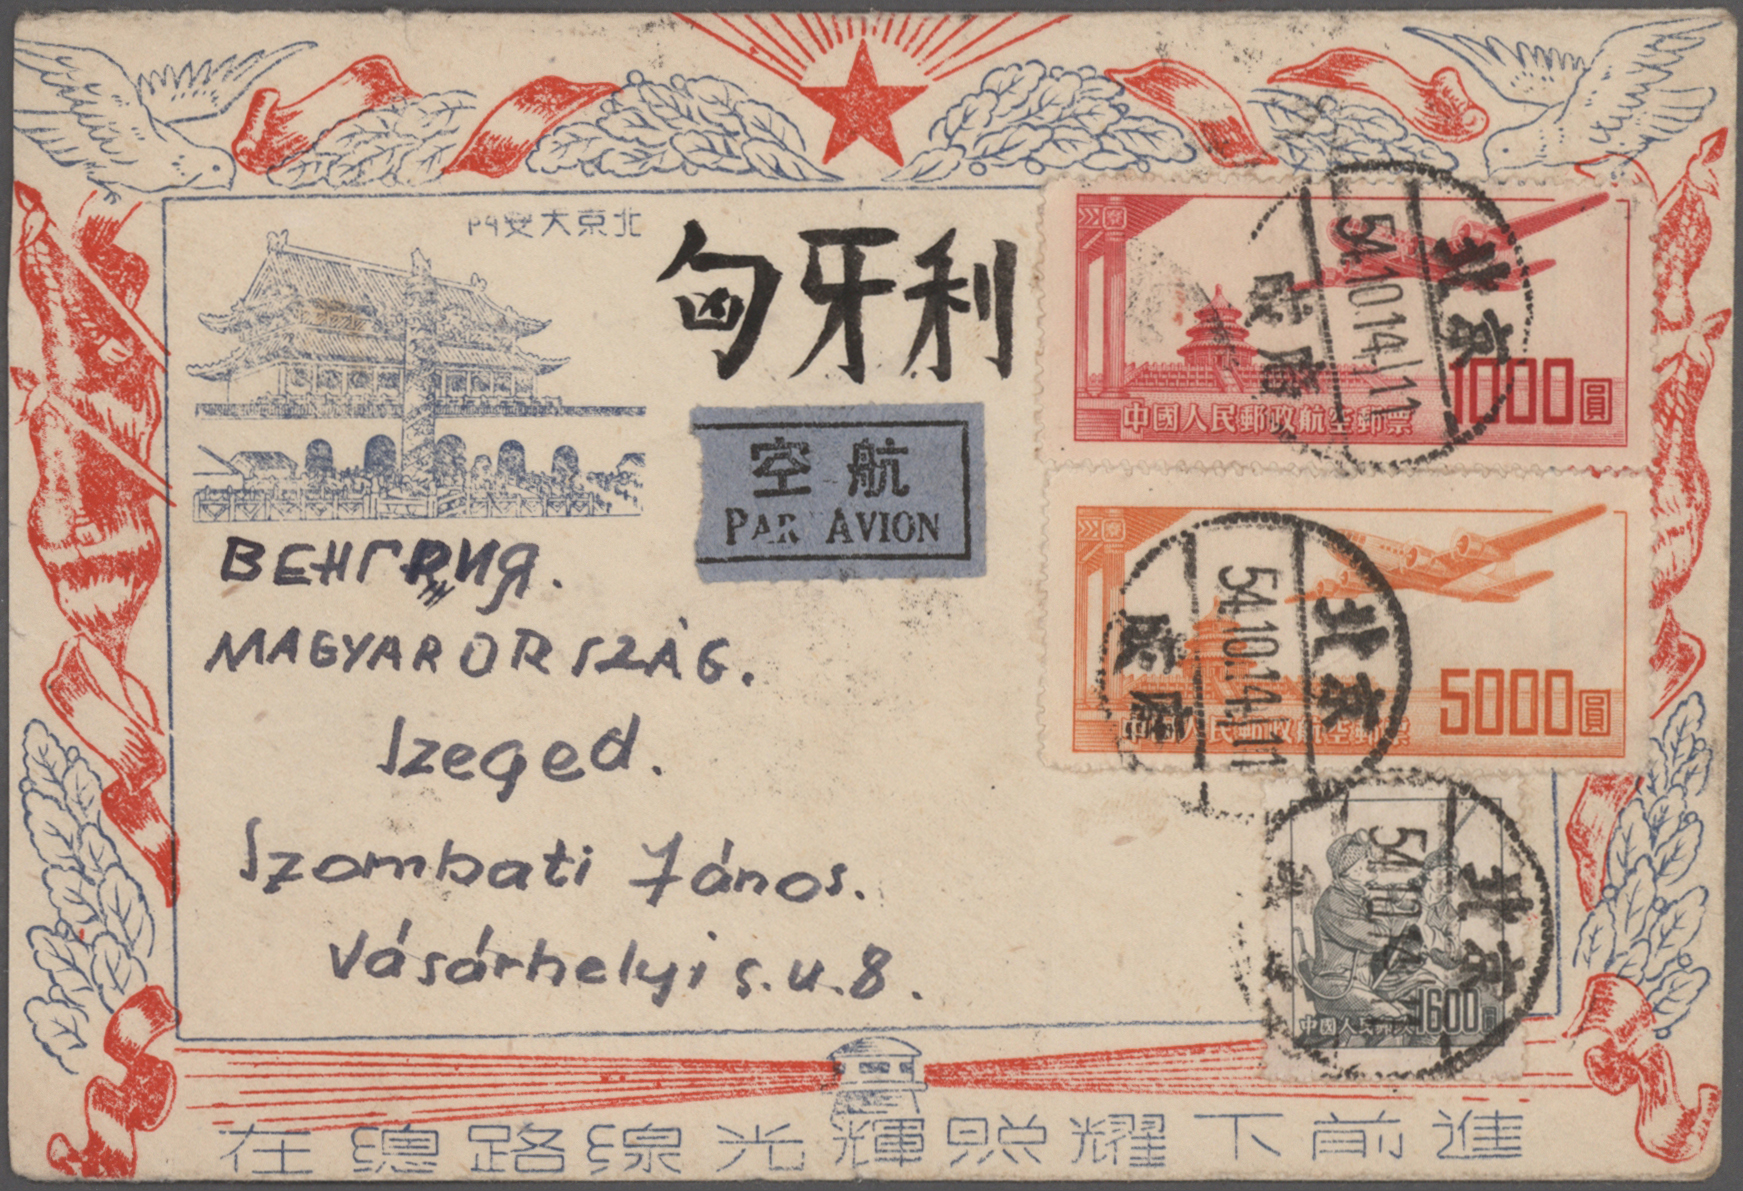 北京天安門
匈牙利
空航
PAR AVION
ВЕНГРИЯ.
MAGYARORSZÁG.
Szeged.
Szombati János.
Vásárhelyi s.u.8.
中國人民郵政航空郵票
1000圓
北京
54.10.14.11
中國人民郵政航空郵票
5000圓
北京
54.10.14.11
中國人民郵政
1600圓
北京
54.10.14
在總路線光輝照耀下前進